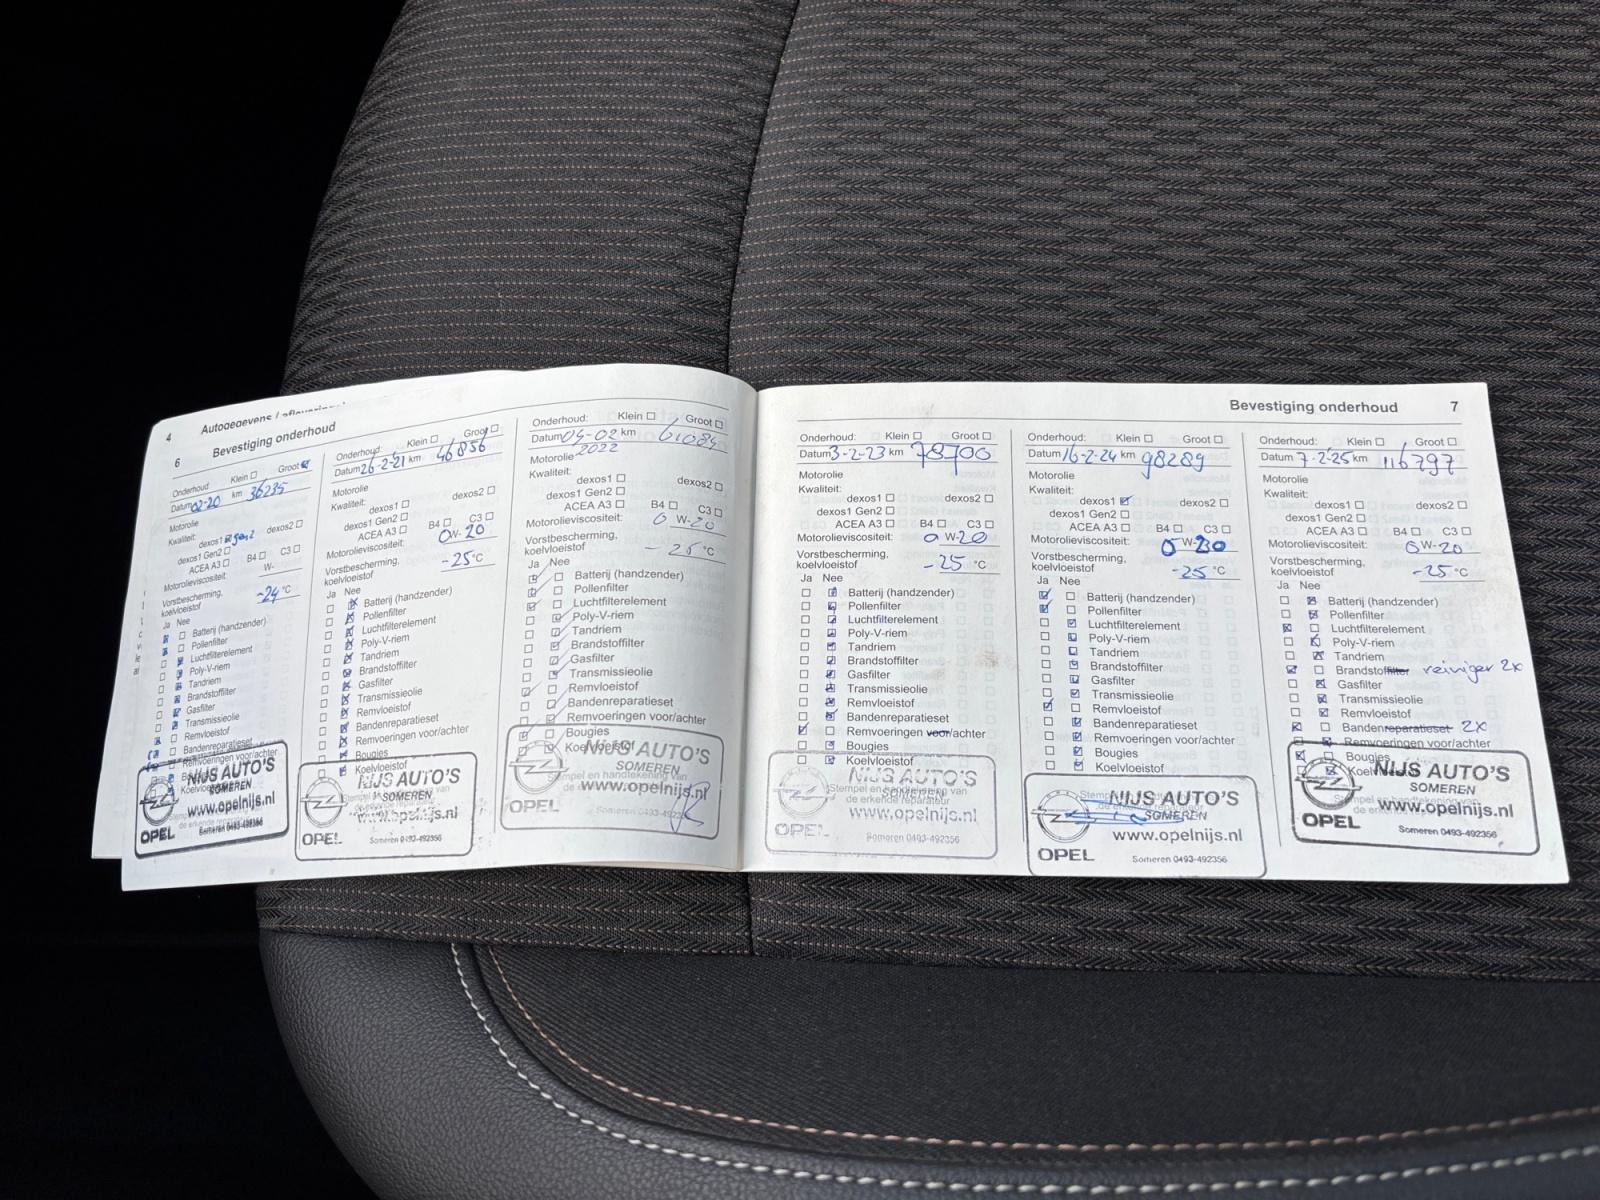 4 Autogegevens /
6 Bevestiging onderhoud
Onderhoud: Klein ☐ Groot ☒
Datum 02-20 km 36235
Motorolie
Kwaliteit: dexos1 ☒ gen2 dexos2 ☐
dexos1 Gen2 ☐
ACEA A3 ☐ B4 ☐ C3 ☐
Motorolieviscositeit: W-
Vorstbescherming,
koelvloeistof -24 °C
Ja Nee
Batterij (handzender)
Pollenfilter
Luchtfilterelement
Poly-V-riem
Tandriem
Brandstoffilter
Gasfilter
Transmissieolie
Remvloeistof
Bandenreparatieset
Remvoeringen voor/achter
NIJS AUTO'S
SOMEREN
www.opelnijs.nl
OPEL
Someren 0493-492356
Onderhoud: Klein ☐ Groot ☐
Datum 26-2-21 km 46856
Motorolie
Kwaliteit:
dexos1 ☐ dexos2 ☐
dexos1 Gen2 ☐
ACEA A3 ☐ B4 ☐ C3 ☐
Motorolieviscositeit: 0W-20
Vorstbescherming,
koelvloeistof -25 °C
Ja Nee
Batterij (handzender)
Pollenfilter
Luchtfilterelement
Poly-V-riem
Tandriem
Brandstoffilter
Gasfilter
Transmissieolie
Remvloeistof
Bandenreparatieset
Remvoeringen voor/achter
Bougies
Koelvloeistof
NIJS AUTO'S
SOMEREN
www.opelnijs.nl
OPEL
Someren 0493-492356
Onderhoud: Klein ☐ Groot ☐
Datum 04-02 km 61084
2022
Motorolie
Kwaliteit:
dexos1 ☐ dexos2 ☐
dexos1 Gen2 ☐
ACEA A3 ☐ B4 ☐ C3 ☐
Motorolieviscositeit: 0 W-20
Vorstbescherming,
koelvloeistof -25 °C
Ja Nee
Batterij (handzender)
Pollenfilter
Luchtfilterelement
Poly-V-riem
Tandriem
Brandstoffilter
Gasfilter
Transmissieolie
Remvloeistof
Bandenreparatieset
Remvoeringen voor/achter
Bougies
Koelvloeistof
Stempel en handtekening van
NIJS AUTO'S
SOMEREN
www.opelnijs.nl
OPEL
Someren 0493-492356
Bevestiging onderhoud 7
Onderhoud: Klein ☐ Groot ☐
Datum 3-2-23 km 78700
Motorolie
Kwaliteit:
dexos1 ☐ dexos2 ☐
dexos1 Gen2 ☐
ACEA A3 ☐ B4 ☐ C3 ☐
Motorolieviscositeit: 0 W-20
Vorstbescherming,
koelvloeistof -25 °C
Ja Nee
Batterij (handzender)
Pollenfilter
Luchtfilterelement
Poly-V-riem
Tandriem
Brandstoffilter
Gasfilter
Transmissieolie
Remvloeistof
Bandenreparatieset
Remvoeringen voor/achter
Bougies
Koelvloeistof
Stempel en handtekening van
de erkende reparateur
NIJS AUTO'S
SOMEREN
www.opelnijs.nl
OPEL
Someren 0493-492356
Onderhoud: Klein ☐ Groot ☐
Datum 16-2-24 km 98289
Motorolie
Kwaliteit:
dexos1 ☒ dexos2 ☐
dexos1 Gen2 ☐
ACEA A3 ☐ B4 ☐ C3 ☐
Motorolieviscositeit: 0 W-20
Vorstbescherming,
koelvloeistof -25 °C
Ja Nee
Batterij (handzender)
Pollenfilter
Luchtfilterelement
Poly-V-riem
Tandriem
Brandstoffilter
Gasfilter
Transmissieolie
Remvloeistof
Bandenreparatieset
Remvoeringen voor/achter
Bougies
Koelvloeistof
NIJS AUTO'S
SOMEREN
www.opelnijs.nl
OPEL
Someren 0493-492356
Onderhoud: Klein ☐ Groot ☐
Datum 7-2-25 km 116797
Motorolie
Kwaliteit:
dexos1 ☐ dexos2 ☐
dexos1 Gen2 ☐
ACEA A3 ☐ B4 ☐ C3 ☐
Motorolieviscositeit: 0 W-20
Vorstbescherming,
koelvloeistof -25 °C
Ja Nee
Batterij (handzender)
Pollenfilter
Luchtfilterelement
Poly-V-riem
Tandriem
Brandstoffilter reiniger 2x
Gasfilter
Transmissieolie
Remvloeistof
Bandenreparatieset 2x
Remvoeringen voor/achter
Bougies
Koelvloeistof
NIJS AUTO'S
SOMEREN
www.opelnijs.nl
OPEL
Someren 0493-492356